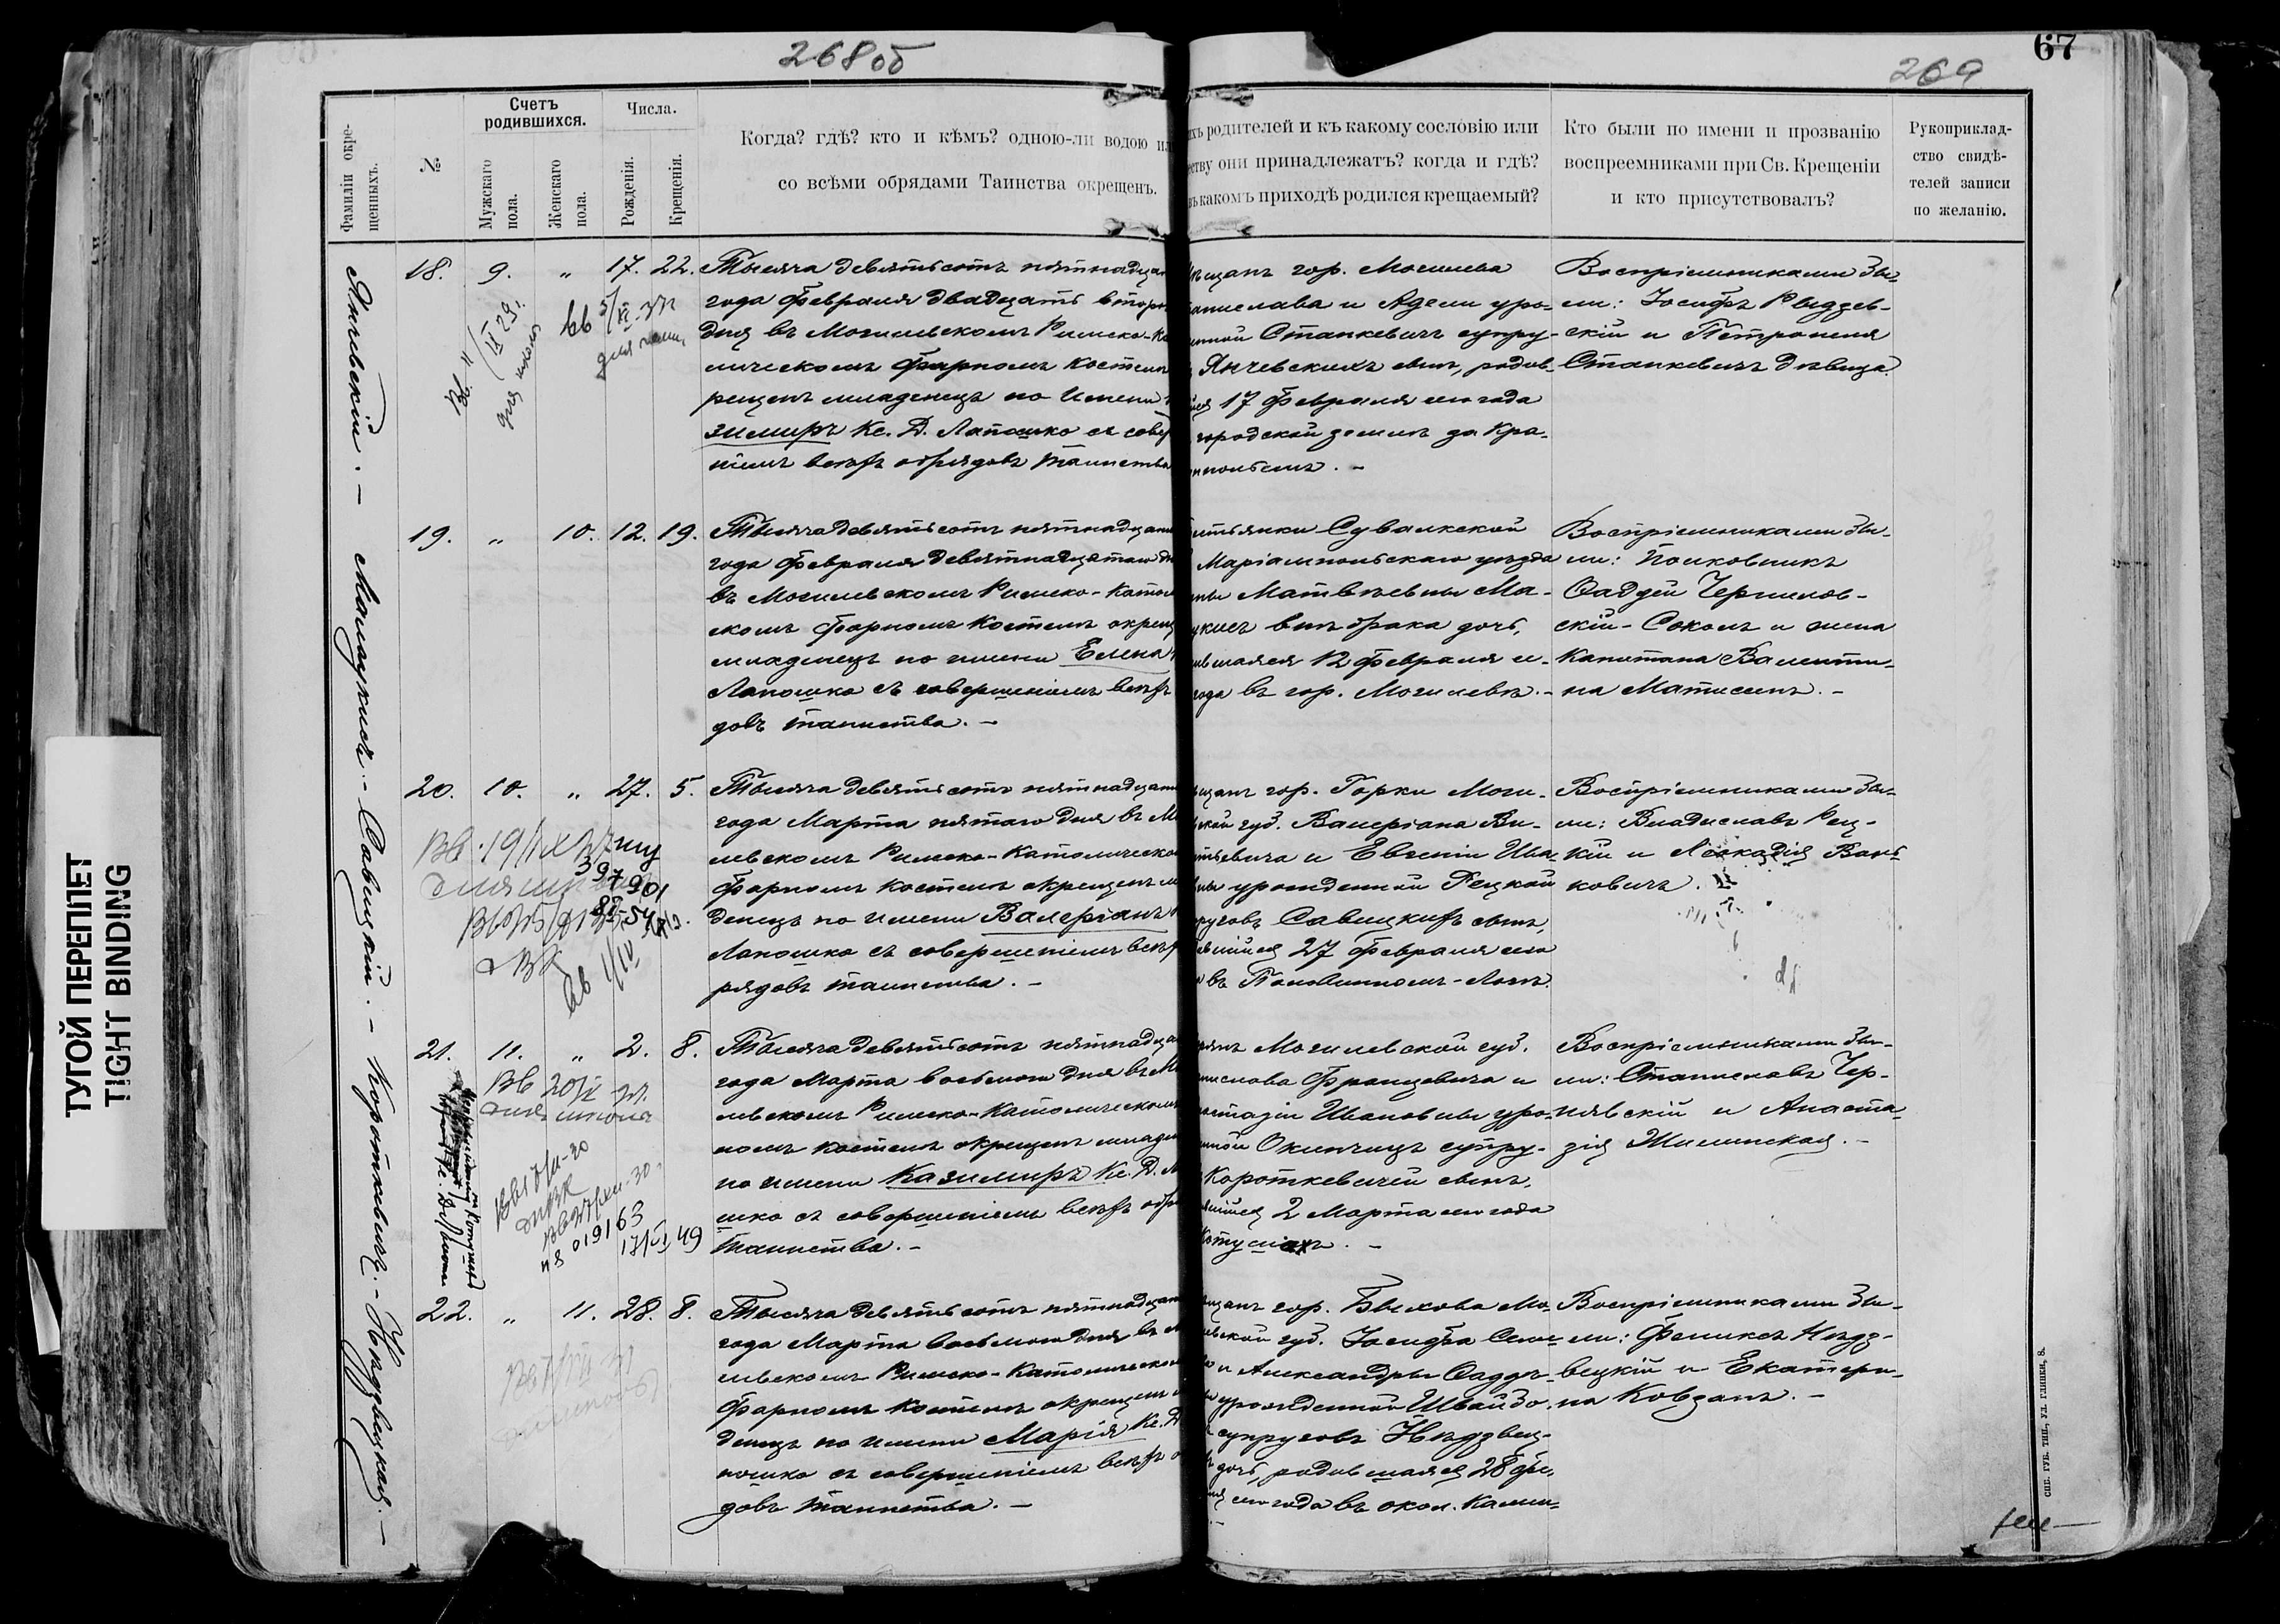 268об
67
269
Фамиліи окре-
щенныхъ.
№
Счетъ
родившихся.
Мужскаго
пола.
Женскаго
пола.
Числа.
Рожденія.
Крещенія.
Когда? гдѣ? кто и кѣмъ? одною-ли водою ил
со всѣми обрядами Таинства окрещенъ.
ихъ родителей и къ какому сословію или
еству они принадлежатъ? когда и гдѣ?
въ какомъ приходѣ родился крещаемый?
Кто были по имени и прозванію
воспреемниками при Св. Крещеніи
и кто присутствовалъ?
Рукоприклад-
ство свидѣ-
телей записи
по желанію.
Янчевскій. –
18. 9. „ 17. 22.
Тысяча девятьсотъ пятнадцат
года Февраля двадцать втор
дня въ Могилевскомъ Римско-Ка
лическомъ Фарномъ Костелѣ
рещенъ младенецъ по имени
зимиръ Кс. Д. Лапошко съ совер
ніемъ всѣхъ обрядовъ таинства
ѣщанъ гор. Могилева
танислава и Адели уро-
енной Станкевичъ супру-
Янчевскихъ сынъ, родив-
ійся 17 Февраля сего года
городской землѣ за Кра-
нопольемъ. –
Воспріемниками бы-
ли: Іосифъ Рыдзев-
скій и Петронеля
Станкевичъ дѣвица.
19. „ 10. 12. 19.
Тысяча девятьсотъ пятнадцат
года Февраля девятнадцатаго дн
въ Могилевскомъ Римско-Катол
скомъ Фарномъ Костелѣ окрещ
младенецъ по имени Елена
Лапошко съ совершеніемъ всѣхъ
довъ таинства. –
стьянки Сувалкской
Маріампольскаго уѣзда
ны Матвѣевны Ма-
укисъ внѣ брака дочь,
ившаяся 12 Февраля с.
года въ гор. Могилевѣ. –
Воспріемниками бы-
ли: Полковникъ
Фаддей Чернилов-
скій-Соколъ и жена
Капитана Валенти-
на Матисенъ. –
Савицкій. –
20. 10. „ 27. 5.
Тысяча девятьсотъ пятнадцат
года Марта пятаго дня въ Мо
левскомъ Римско-Католическо
Фарномъ костелѣ окрещенъ м
денецъ по имени Валеріанъ
Лапошко съ совершеніемъ всѣх
рядовъ таинства. –
щанъ гор. Горки Моги-
ской губ. Валеріана Ви-
ьевича и Евгеніи Ива-
ны урожденной Рецкой
руговъ Савицкихъ сынъ,
ившійся 27 Февраля сего
въ Половинномъ-Логѣ.
Воспріемниками бы-
ли: Владиславъ Рец-
кій и Леокадія Вань-
ковичъ.
Короткевичъ. –
21. 11. „ 2. 8.
Тысяча девятьсотъ пятнадца
года Марта восьмого дня въ М
левскомъ Римско-Католическомъ
номъ костелѣ окрещенъ младен
по имени Казимиръ Кс. Д. Л
шко съ совершеніемъ всѣхъ обр
таинства. –
рянъ Могилевской губ.
нислава Францевича и
стазіи Ивановны уро-
нной Окинчицъ супру-
Короткевичей сынъ,
ившійся 2 Марта сего года
Воспріемниками бы-
ли: Станиславъ Чер-
нявскій и Анаста-
зія Жилинская. –
Нѣдзвецкая. –
22. „ 11. 28. 8.
Тысяча девятьсотъ пятнадцат
года Марта восьмого дня въ М
левскомъ Римско-Католическо
Фарномъ костелѣ окрещенъ
денецъ по имени Марія Кс. Д
пошко съ совершеніемъ всѣхъ о
довъ таинства. –
щанъ гор. Быхова Мо-
евской губ. Іосифа Семе-
и Александры Фаддѣ-
урожденной Швайбо-
супруговъ Нѣдзвец-
дочь, родившаяся 28 Фе-
сего года въ окол. Камен-
Воспріемниками бы-
ли: Феликсъ Нѣдз-
вецкій и Екатери-
на Ковзанъ. –
ТУГОЙ ПЕРЕПЛЕТ
TIGHT BINDING
СПБ. ГУБ. ТИП., УЛ. ГЛИНКИ, 8.